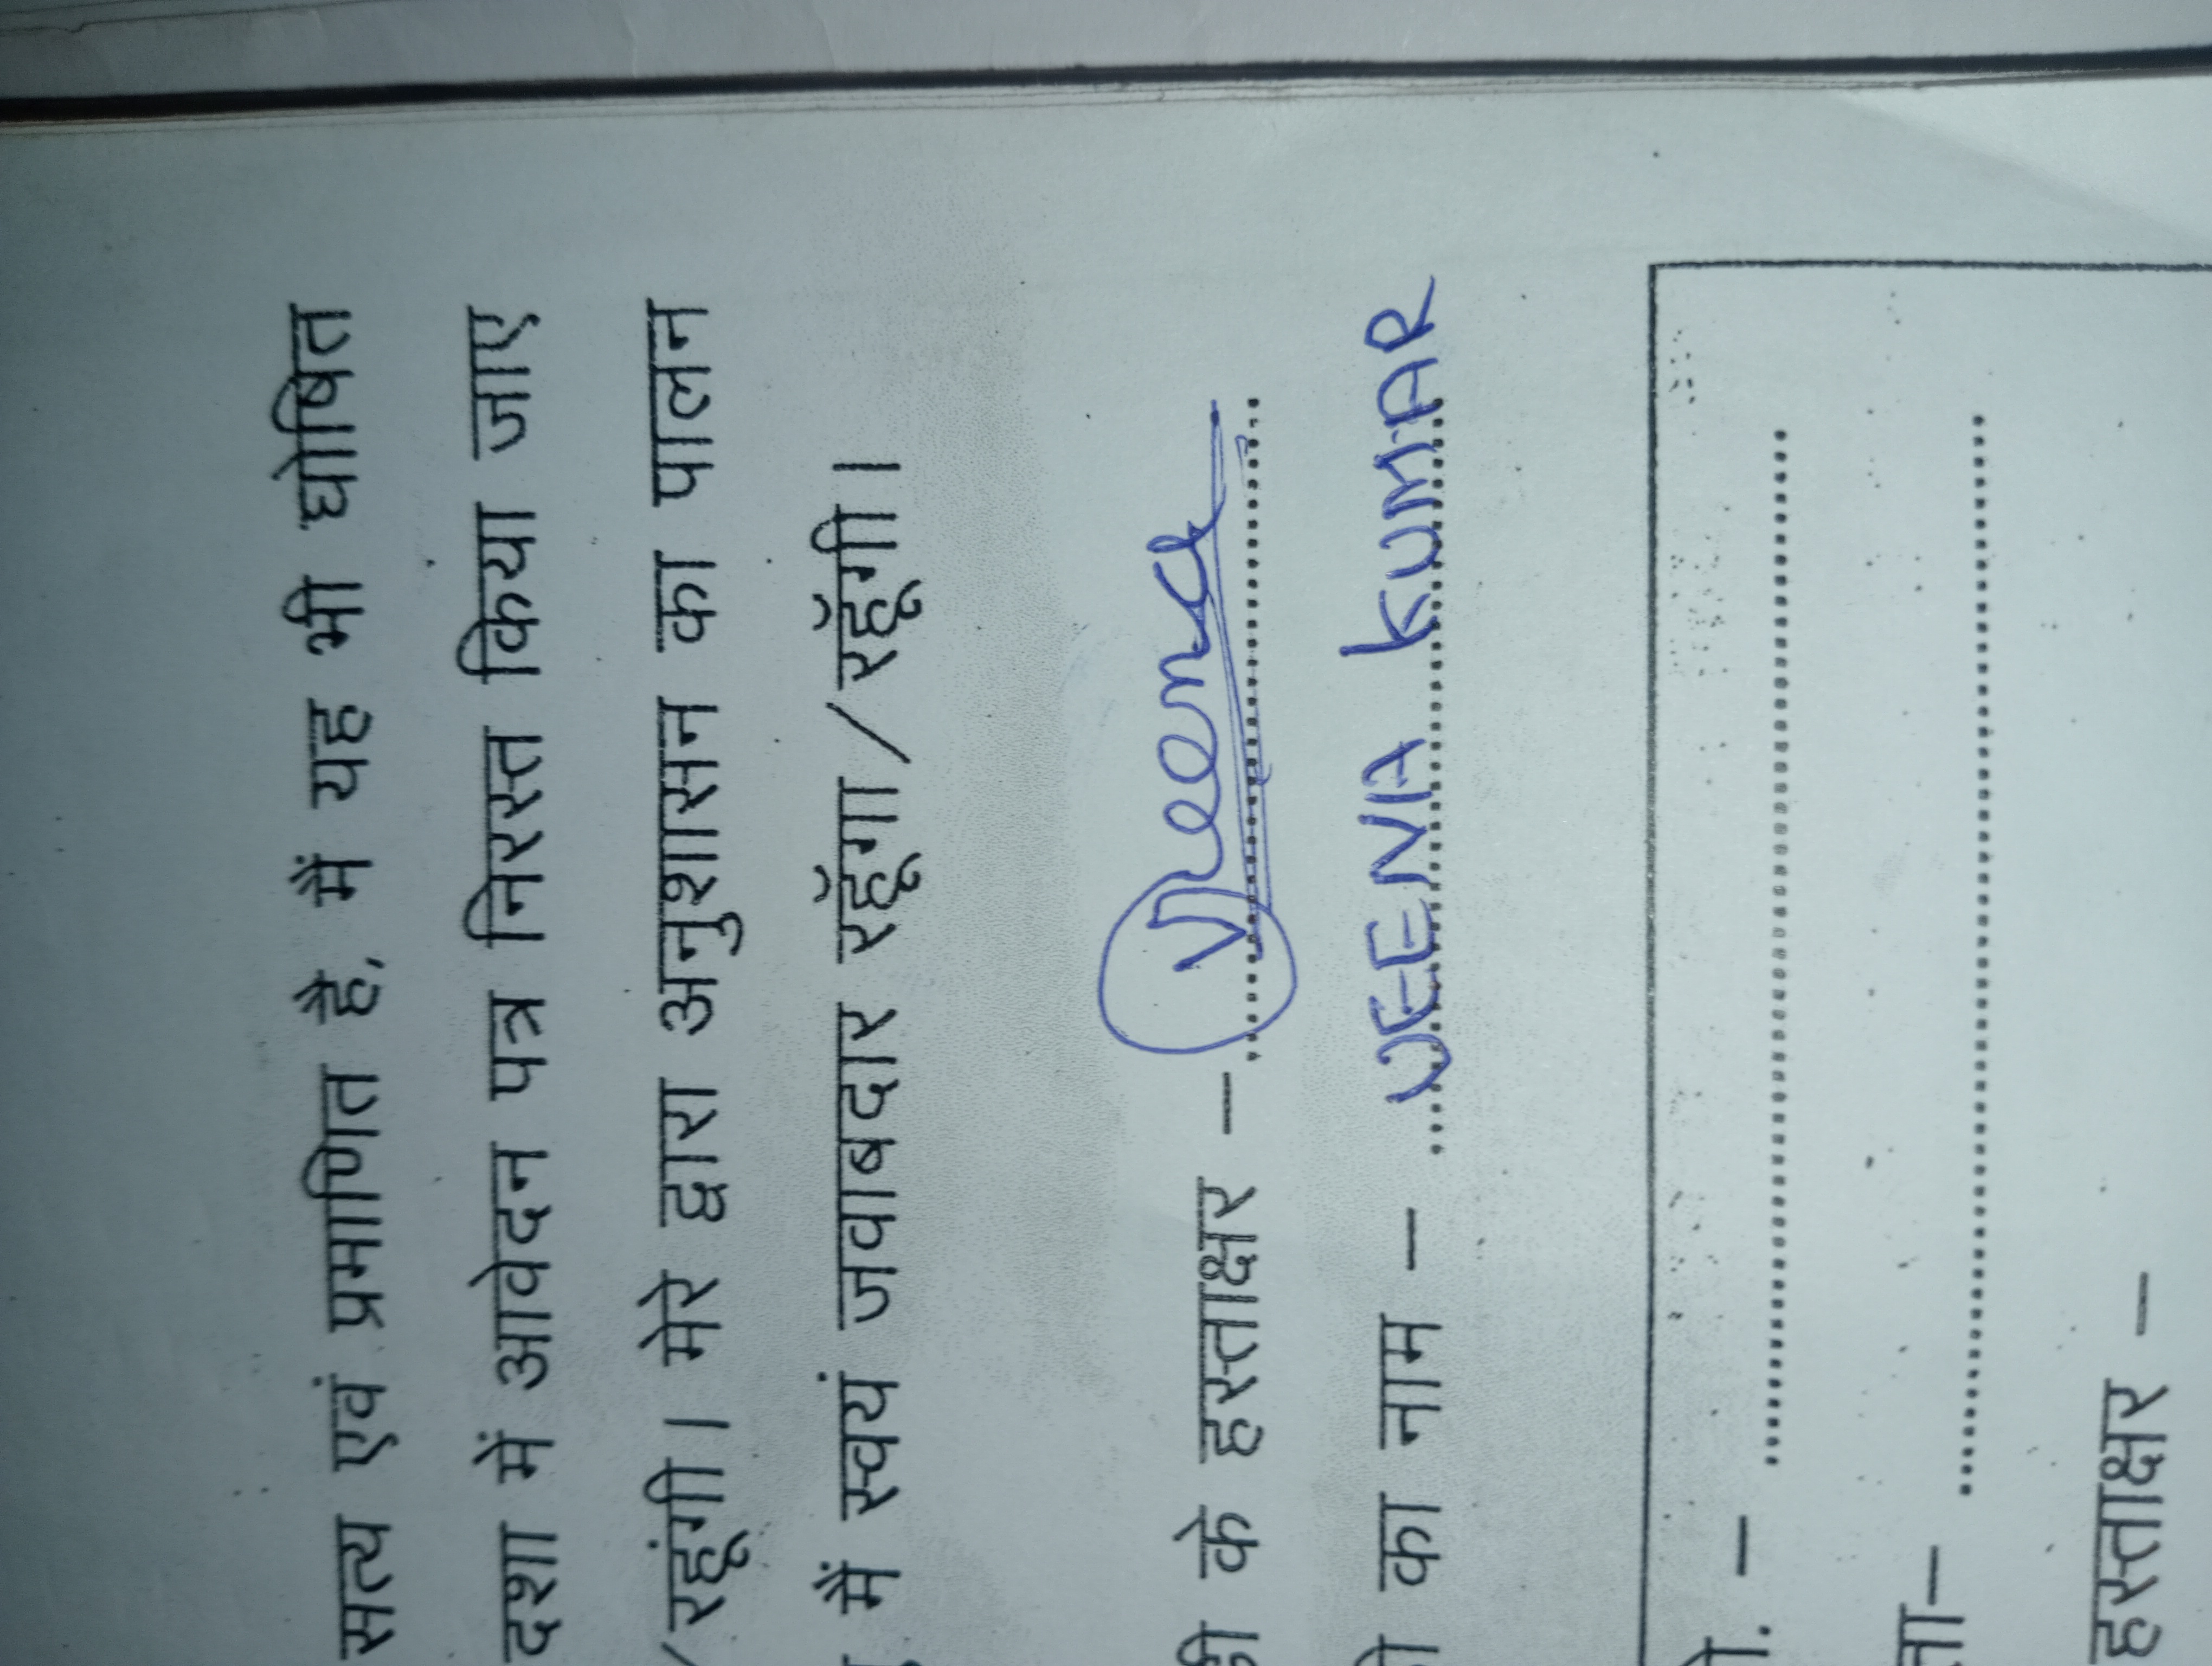 सत्य एवं प्रमाणित है, मैं यह भी घोषित
दशा में आवेदन पत्र निरस्त किया जाए
/रहूंगी। मेरे द्वारा अनुशासन का पालन
मैं स्वयं जवाबदार रहूँगा/रहूँगी।
के हस्ताक्षर – Veena
का नाम – VEENA KUMAR
हस्ताक्षर –